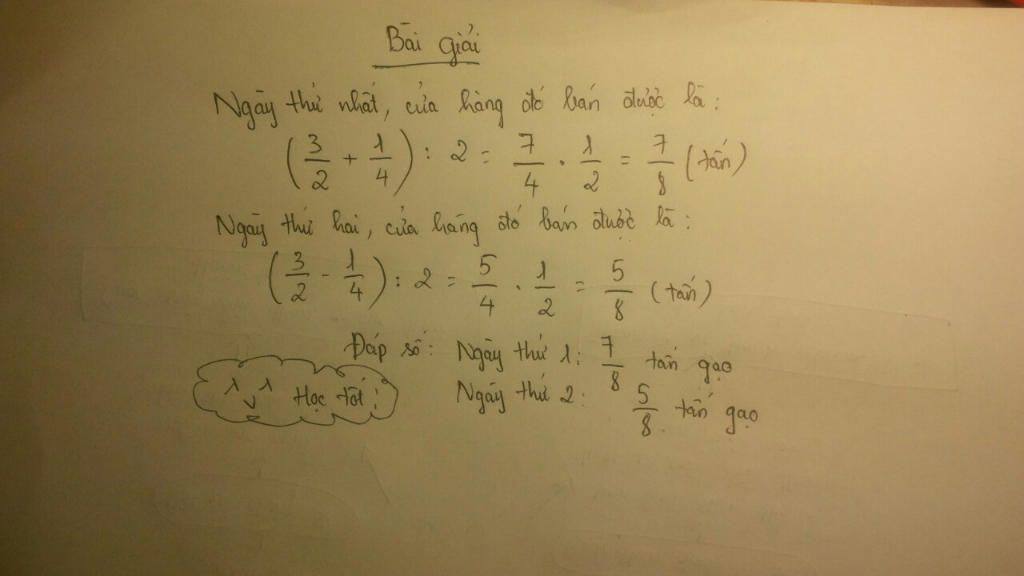 Bài giải
Ngày thứ nhất, cửa hàng đó bán được là:
(3/2 + 1/4) : 2 = 7/4 . 1/2 = 7/8 (tấn)
Ngày thứ hai, cửa hàng đó bán được là:
(3/2 - 1/4) : 2 = 5/4 . 1/2 = 5/8 (tấn)
Đáp số: Ngày thứ 1: 7/8 tấn gạo
Ngày thứ 2: 5/8 tấn gạo
Học tốt!